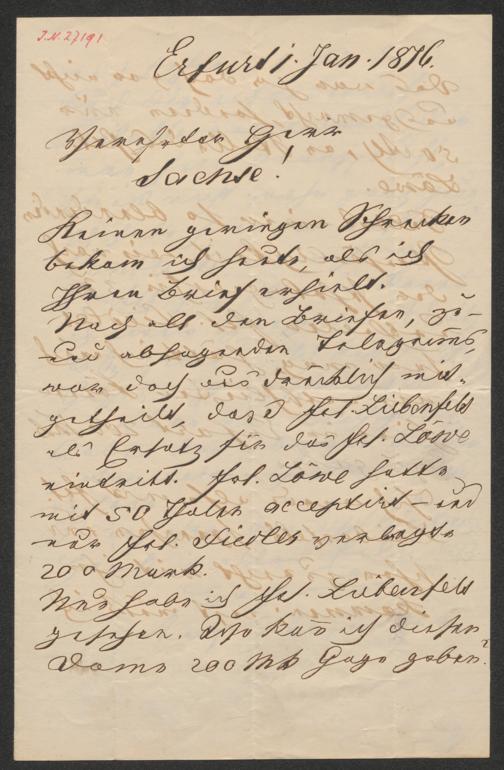 J.N. 27191
Erfurt 1. Jan. 1876.
Verehrter Herr
Sachse!
Keinen geringen Schrecken
bekam ich heute, als ich
Ihren Brief erhielt.
Nach all den Briefen, zu-
und absagenden Telegrams,
war doch ausdrücklich mit-
getheilt, dass Frl. Liebenfeld
als Ersatz für das Frl. Löwe
eintritt. Frl. Löwe hatte
mit 50 Thaler acceptirt – und
nur Frl. Fiedler verlangte
200 Mark.
Nun habe ich Frl. Liebenfeld
gesehen. Wie kan̄ ich dieser
Dame 200 Mk Gage geben?